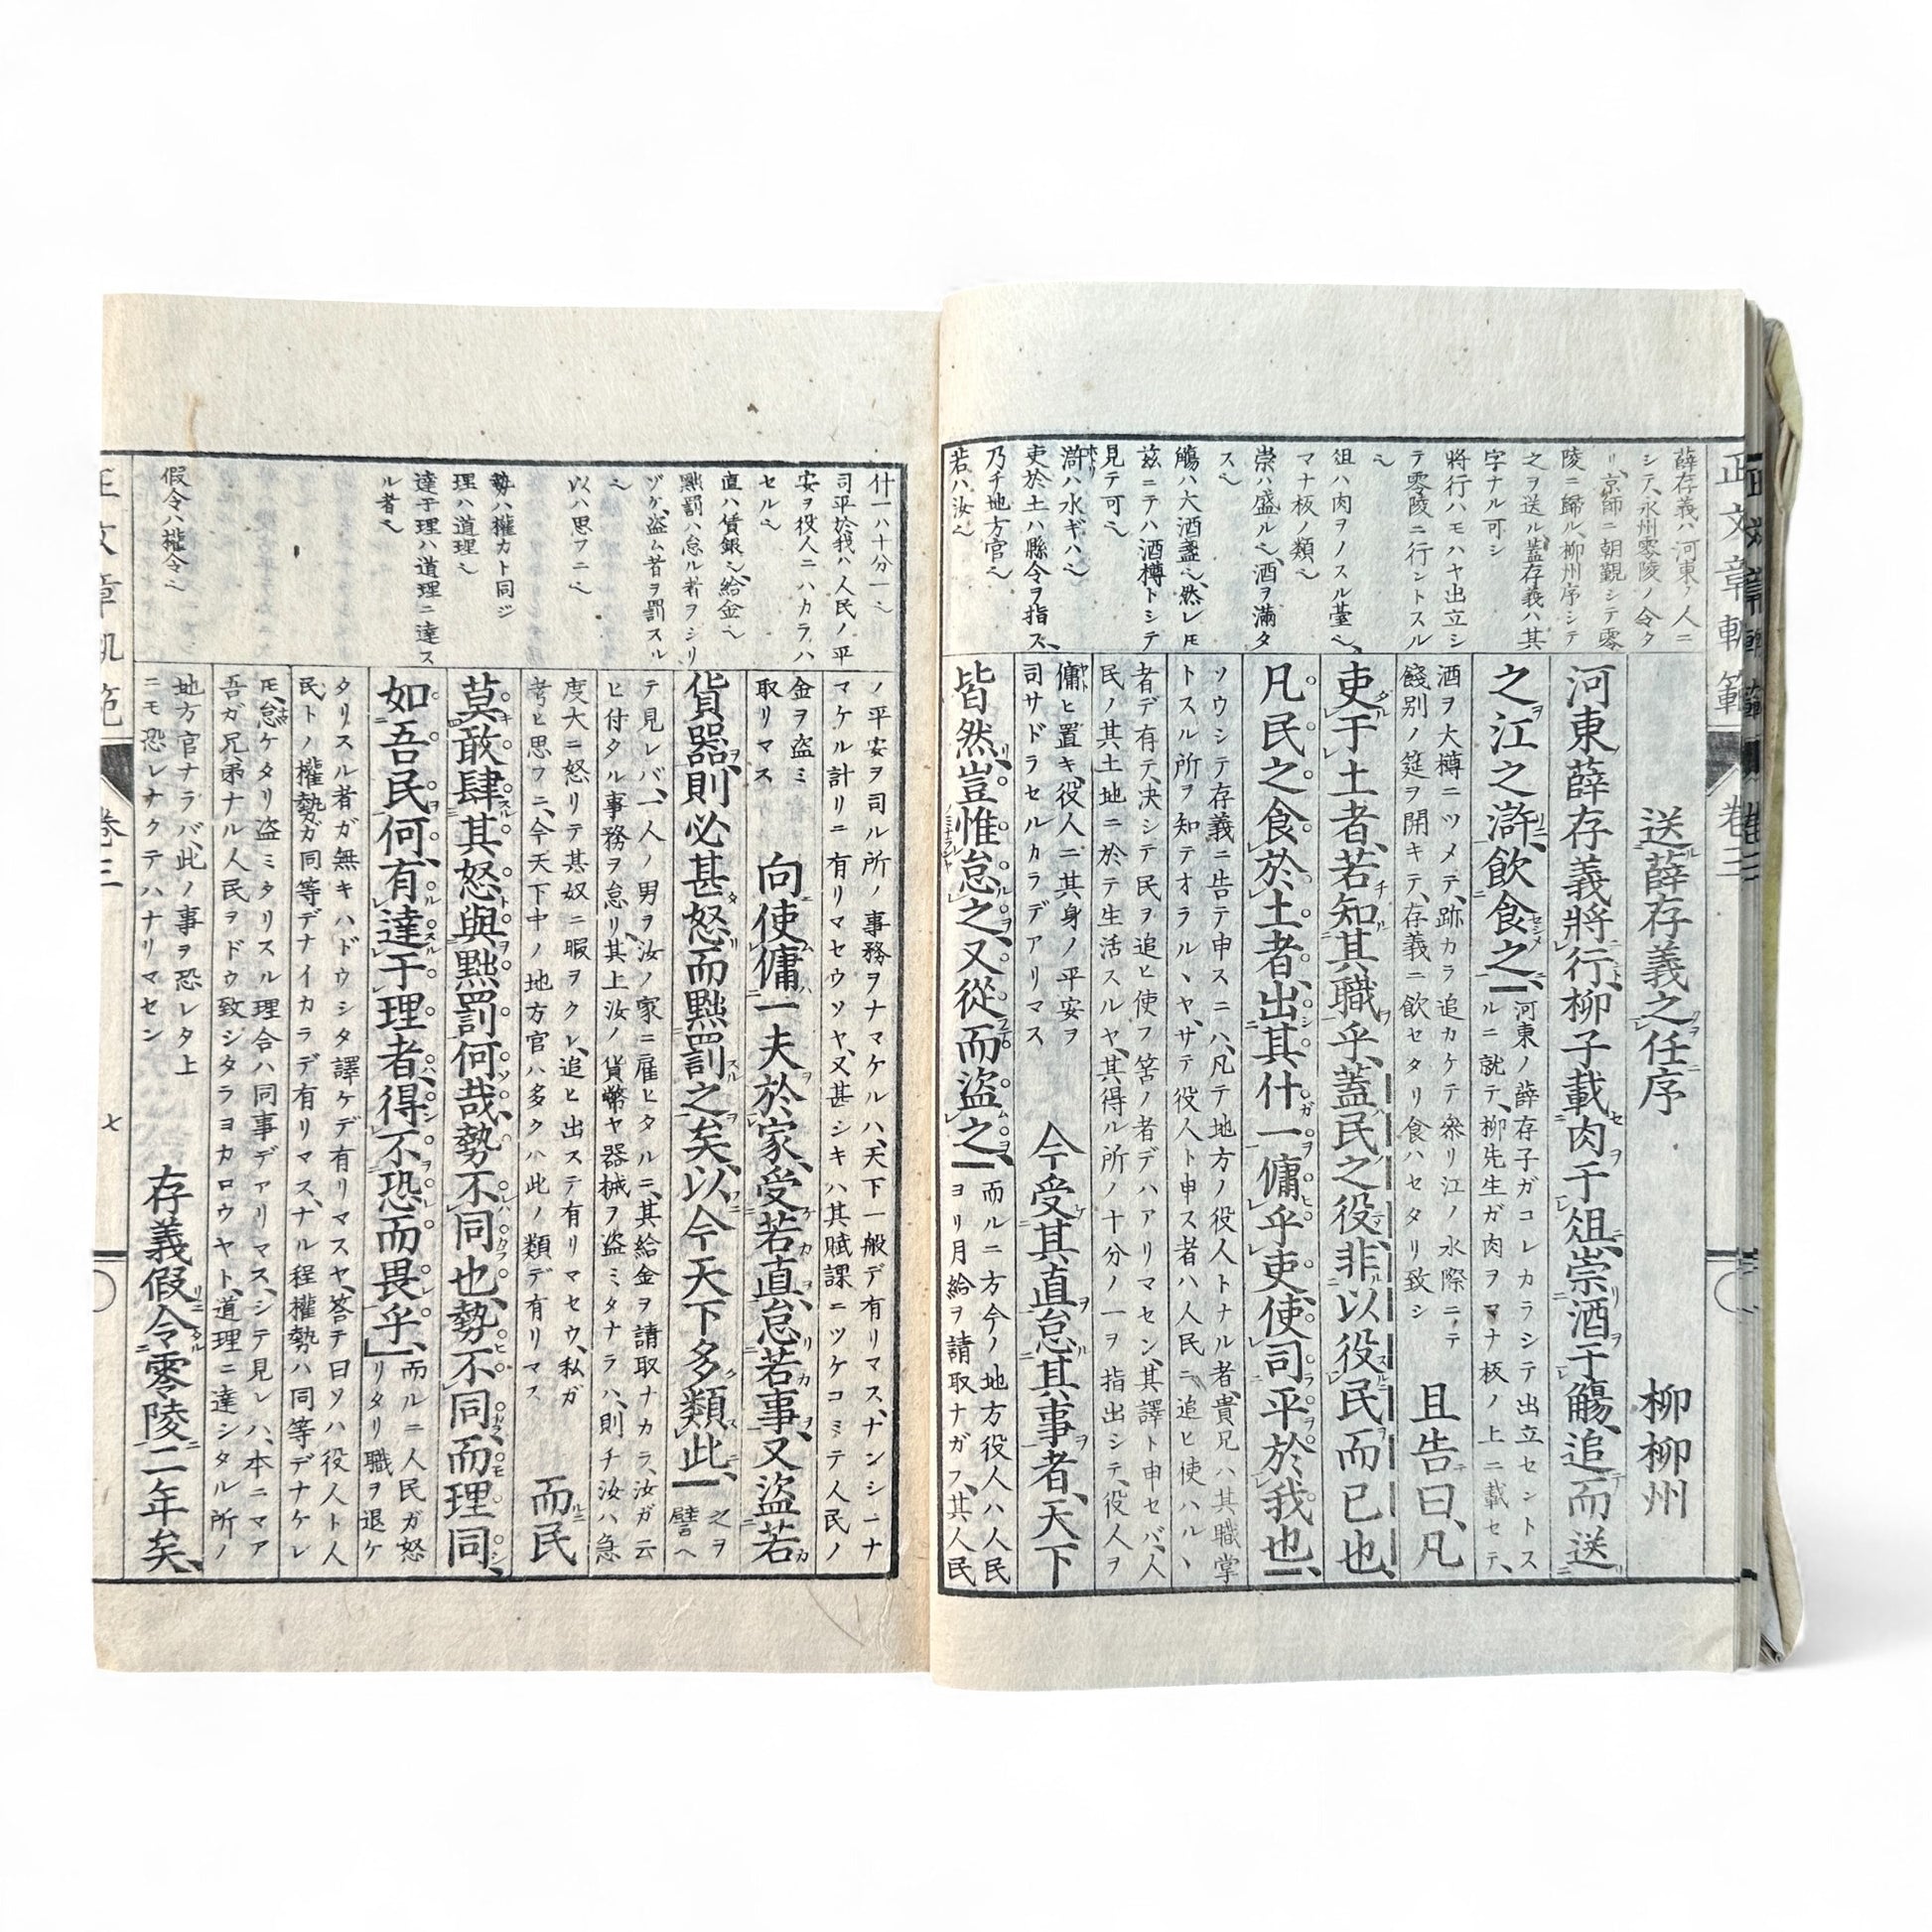 薛存義ハ河東ノ人ニ
シテ、永州零陵ノ令タ
リ、京師ニ朝覲シテ零
陵ニ歸ル、柳州序シテ
之ヲ送ル、蓋存義ハ其
字ナル可シ
將行ハモハヤ出立シ
テ零陵ニ行ントスル
ヘ
俎ハ肉ヲノスル臺ヘ、
マナ板ノ類ヘ
崇ハ盛ルヘ、酒ヲ滿タ
スヘ
觴ハ大酒盞ヘ、然レ𪜈
茲ニテハ酒樽トシテ
見テ可ヘ
滸ハ水ギハヘ
吏於土ハ縣令ヲ指ス、
乃チ地方官ヘ
若ハ汝ヘ
送薛存義之任序 柳柳州
河東薛存義將行、柳子載肉于俎、崇酒于觴、追而送
之江之滸、飲食之、
河東ノ薛存子ガコレカラシテ出立セントス
ルニ就テ、柳先生ガ肉ヲマナ板ノ上ニ載セテ、
酒ヲ大樽ニツメテ、跡カラ追カケテ參リ江ノ水際ニテ
餞別ノ筵ヲ開キテ、存義ニ飲セタリ食ハセタリ致シ
且告曰、凡
吏于土者、若知其職乎、蓋民之役、非以役民而已也、
凡民之食於土者、出其什一傭乎吏、使司平於我也、
ソウシテ存義ニ告テ申スニハ、凡テ地方ノ役人トナル者、貴兄ハ其職掌
トスル所ヲ知テオラルヽヤ、サテ役人ト申ス者ハ人民ニ追ヒ使ハルヽ
者デ有テ、決シテ民ヲ追ヒ使フ筈ノ者デハアリマセン、其譯ト申セバ、人
民ノ其土地ニ於テ生活スルヤ、其得ル所ノ十分ノ一ヲ指出シテ、役人ヲ
傭ヒ置キ、役人ニ其身ノ平安ヲ
司サドラセルカラデアリマス
今受其直怠其事者、天下
皆然、豈惟怠之、又從而盜之、
而ルニ方今ノ地方役人ハ人民
ヨリ月給ヲ請取ナガラ、其人民
正文章軌範
卷三
什一ハ十分一ヘ
司平於我ハ人民ノ平
安ヲ役人ニハカラハ
セルヘ
直ハ賃銀ヘ、給金ヘ
黜罰ハ怠ル者ヲシリ
ゾケ、盜ム者ヲ罰スル
ヘ
以ハ思フニヘ
勢ハ權力ト同ジ
理ハ道理ヘ
達于理ハ道理ニ達ス
ル者ヘ
假令ハ權令ヘ
ノ平安ヲ司ル所ノ事務ヲナマケルハ、天下一般デ有リマス、ナンシーナ
マケル計リニ有リマセウツヤ、又甚シキハ其賦課ニツケコミテ人民ノ
金ヲ盜ミ
取リマス
向使傭一夫於家、受若直、怠若事、又盜若
貨器、則必甚怒而黜罰之矣、以今天下多類此、
之ヲ
譬ヘ
テ見レバ、一人ノ男ヲ汝ノ家ニ雇ヒタルニ、其給金ヲ請取ナカラ、汝ガ云
ヒ付タル事務ヲ怠リ、其上汝ノ貨幣ヤ器械ヲ盜ミタナラハ、則チ汝ハ急
度大ニ怒リテ其奴ニ暇ヲクレ、追ヒ出ステ有リマセウ、私ガ
考ヒ思フニ、今天下中ノ地方官ハ多クハ此ノ類デ有リマス
而民
莫敢肆其怒與黜罰何哉、勢不同也、勢不同而理同、
如吾民何、有達于理者、得不恐而畏乎、
而ルニ人民ガ怒
リタリ職ヲ退ケ
タリスル者ガ無キハ、ドウシタ譯ケデ有リマスヤ、答テ曰ソハ役人ト人
民トノ權勢ガ同等デナイカラデ有リマス、ナル程權勢ハ同等デナケレ
𪜈、怠ケタリ盜ミタリスル理合ハ同事デアリマス、シテ見レハ、本ニマア
吾ガ兄弟ナル人民ヲドウ致シタラヨカロウヤト、道理ニ達シタル所ノ
地方官ナラバ、此ノ事ヲ恐レタ上
ニモ恐レナクテハナリマセン
存義假令零陵二年矣、
正文章軌範
卷三
七